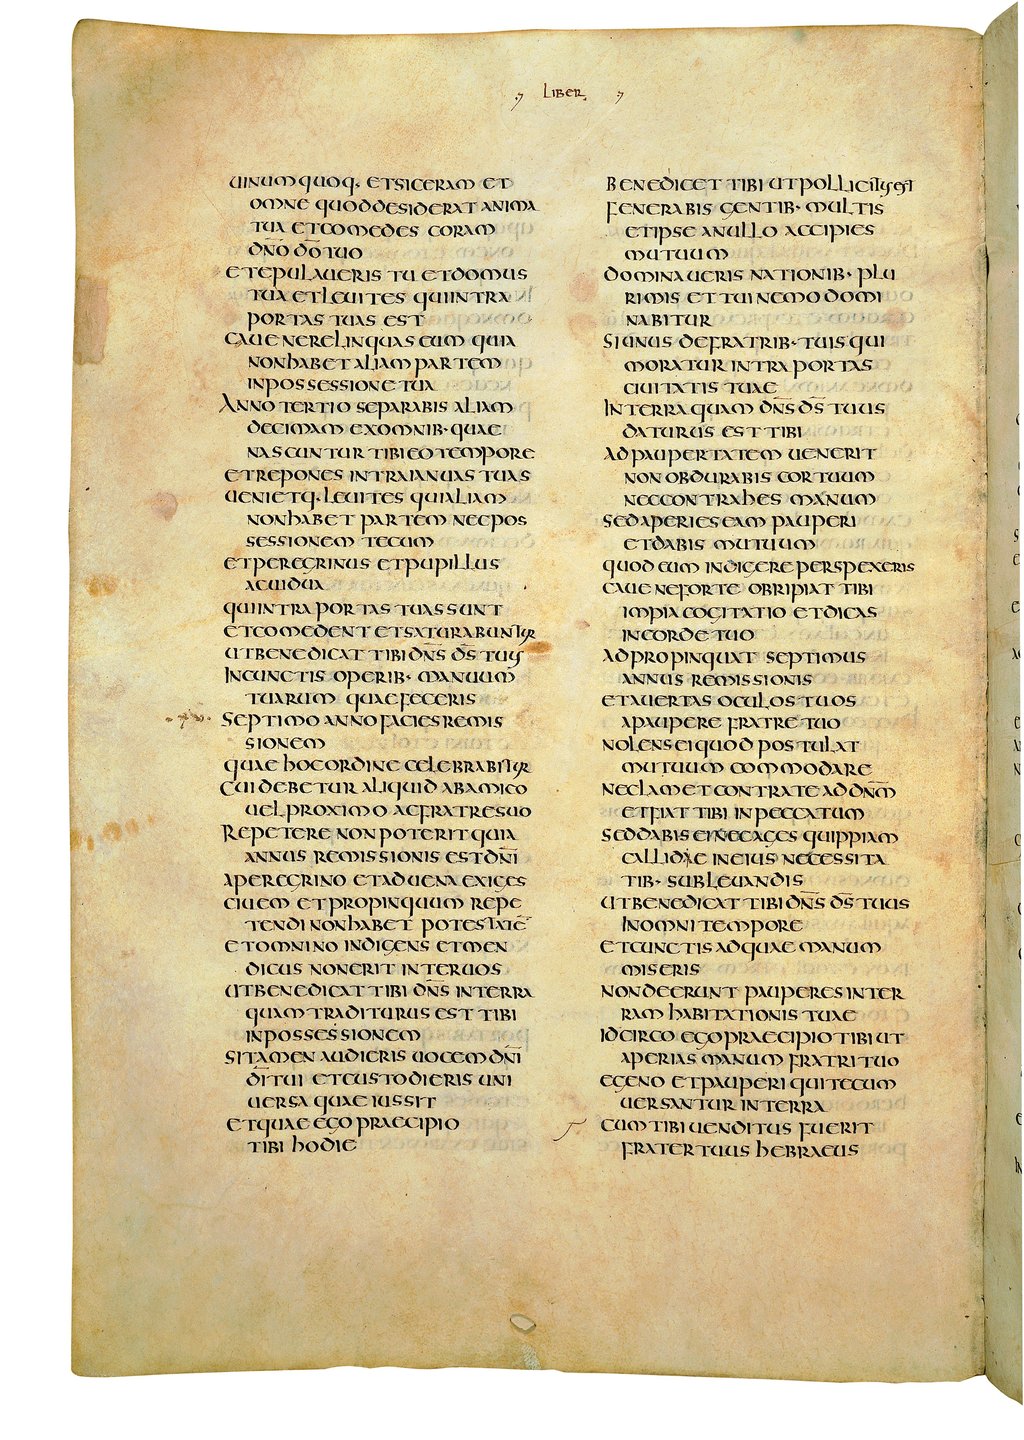 LIBER
UINUM QUOQ· ET SICERAM ET
OMNE QUOD DESIDERAT ANIMA
TUA ET COMEDES CORAM
DN̄O DŌ TUO
ET EPULAUERIS TU ET DOMUS
TUA ET LEUITES QUI INTRA
PORTAS TUAS EST
CAUE NE RELINQUAS EUM QUIA
NON HABET ALIAM PARTEM
IN POSSESSIONE TUA
ANNO TERTIO SEPARABIS ALIAM
DECIMAM EX OMNIB· QUAE
NASCUNTUR TIBI EO TEMPORE
ET REPONES INTRA IANUAS TUAS
UENIETQ· LEUITES QUI ALIAM
NON HABET PARTEM NEC POS
SESSIONEM TECUM
ET PEREGRINUS ET PUPILLUS
AC UIDUA
QUI INTRA PORTAS TUAS SUNT
ET COMEDENT ET SATURABUNTUR
UT BENEDICAT TIBI DN̄S D̄S TUUS
IN CUNCTIS OPERIB· MANUUM
TUARUM QUAE FECERIS
SEPTIMO ANNO FACIES REMIS
SIONEM
QUAE HOC ORDINE CELEBRABITUR
CUI DEBETUR ALIQUID AB AMICO
UEL PROXIMO AC FRATRE SUO
REPETERE NON POTERIT QUIA
ANNUS REMISSIONIS EST DN̄I
A PEREGRINO ET ADUENA EXIGES
CIUEM ET PROPINQUUM REPE
TENDI NON HABET POTESTATĒ
ET OMNINO INDIGENS ET MEN
DICUS NON ERIT INTER UOS
UT BENEDICAT TIBI DN̄S IN TERRA
QUAM TRADITURUS EST TIBI
IN POSSESSIONEM
SI TAMEN AUDIERIS UOCEM DN̄I
D̄I TUI ET CUSTODIERIS UNI
UERSA QUAE IUSSIT
ET QUAE EGO PRAECIPIO
TIBI HODIE
BENEDICET TIBI UT POLLICITUS EST
FENERABIS GENTIB· MULTIS
ET IPSE A NULLO ACCIPIES
MUTUUM
DOMINAUERIS NATIONIB· PLU
RIMIS ET TUI NEMO DOMI
NABITUR
SI UNUS DE FRATRIB· TUIS QUI
MORATUR INTRA PORTAS
CIUITATIS TUAE
IN TERRA QUAM DN̄S D̄S TUUS
DATURUS EST TIBI
AD PAUPERTATEM UENERIT
NON OBDURABIS COR TUUM
NEC CONTRAHES MANUM
SED APERIES EAM PAUPERI
ET DABIS MUTUUM
QUOD EUM INDIGERE PERSPEXERIS
CAUE NE FORTE OBRIPIAT TIBI
IMPIA COGITATIO ET DICAS
IN CORDE TUO
ADPROPINQUAT SEPTIMUS
ANNUS REMISSIONIS
ET AUERTAS OCULOS TUOS
A PAUPERE FRATRE TUO
NOLENS EI QUOD POSTULAT
MUTUUM COMMODARE
NE CLAMET CONTRA TE AD DN̄M
ET FIAT TIBI IN PECCATUM
SED DABIS EI NEC AGES QUIPPIAM
CALLIDAE IN EIUS NECESSITA
TIB· SUBLEUANDIS
UT BENEDICAT TIBI DN̄S D̄S TUUS
IN OMNI TEMPORE
ET CUNCTIS AD QUAE MANUM
MISERIS
NON DEERUNT PAUPERES IN TER
RAM HABITATIONIS TUAE
IDCIRCO EGO PRAECIPIO TIBI UT
APERIAS MANUM FRATRI TUO
EGENO ET PAUPERI QUI TECUM
UERSANTUR IN TERRA
CUM TIBI UENDITUS FUERIT
FRATER TUUS HEBRAEUS